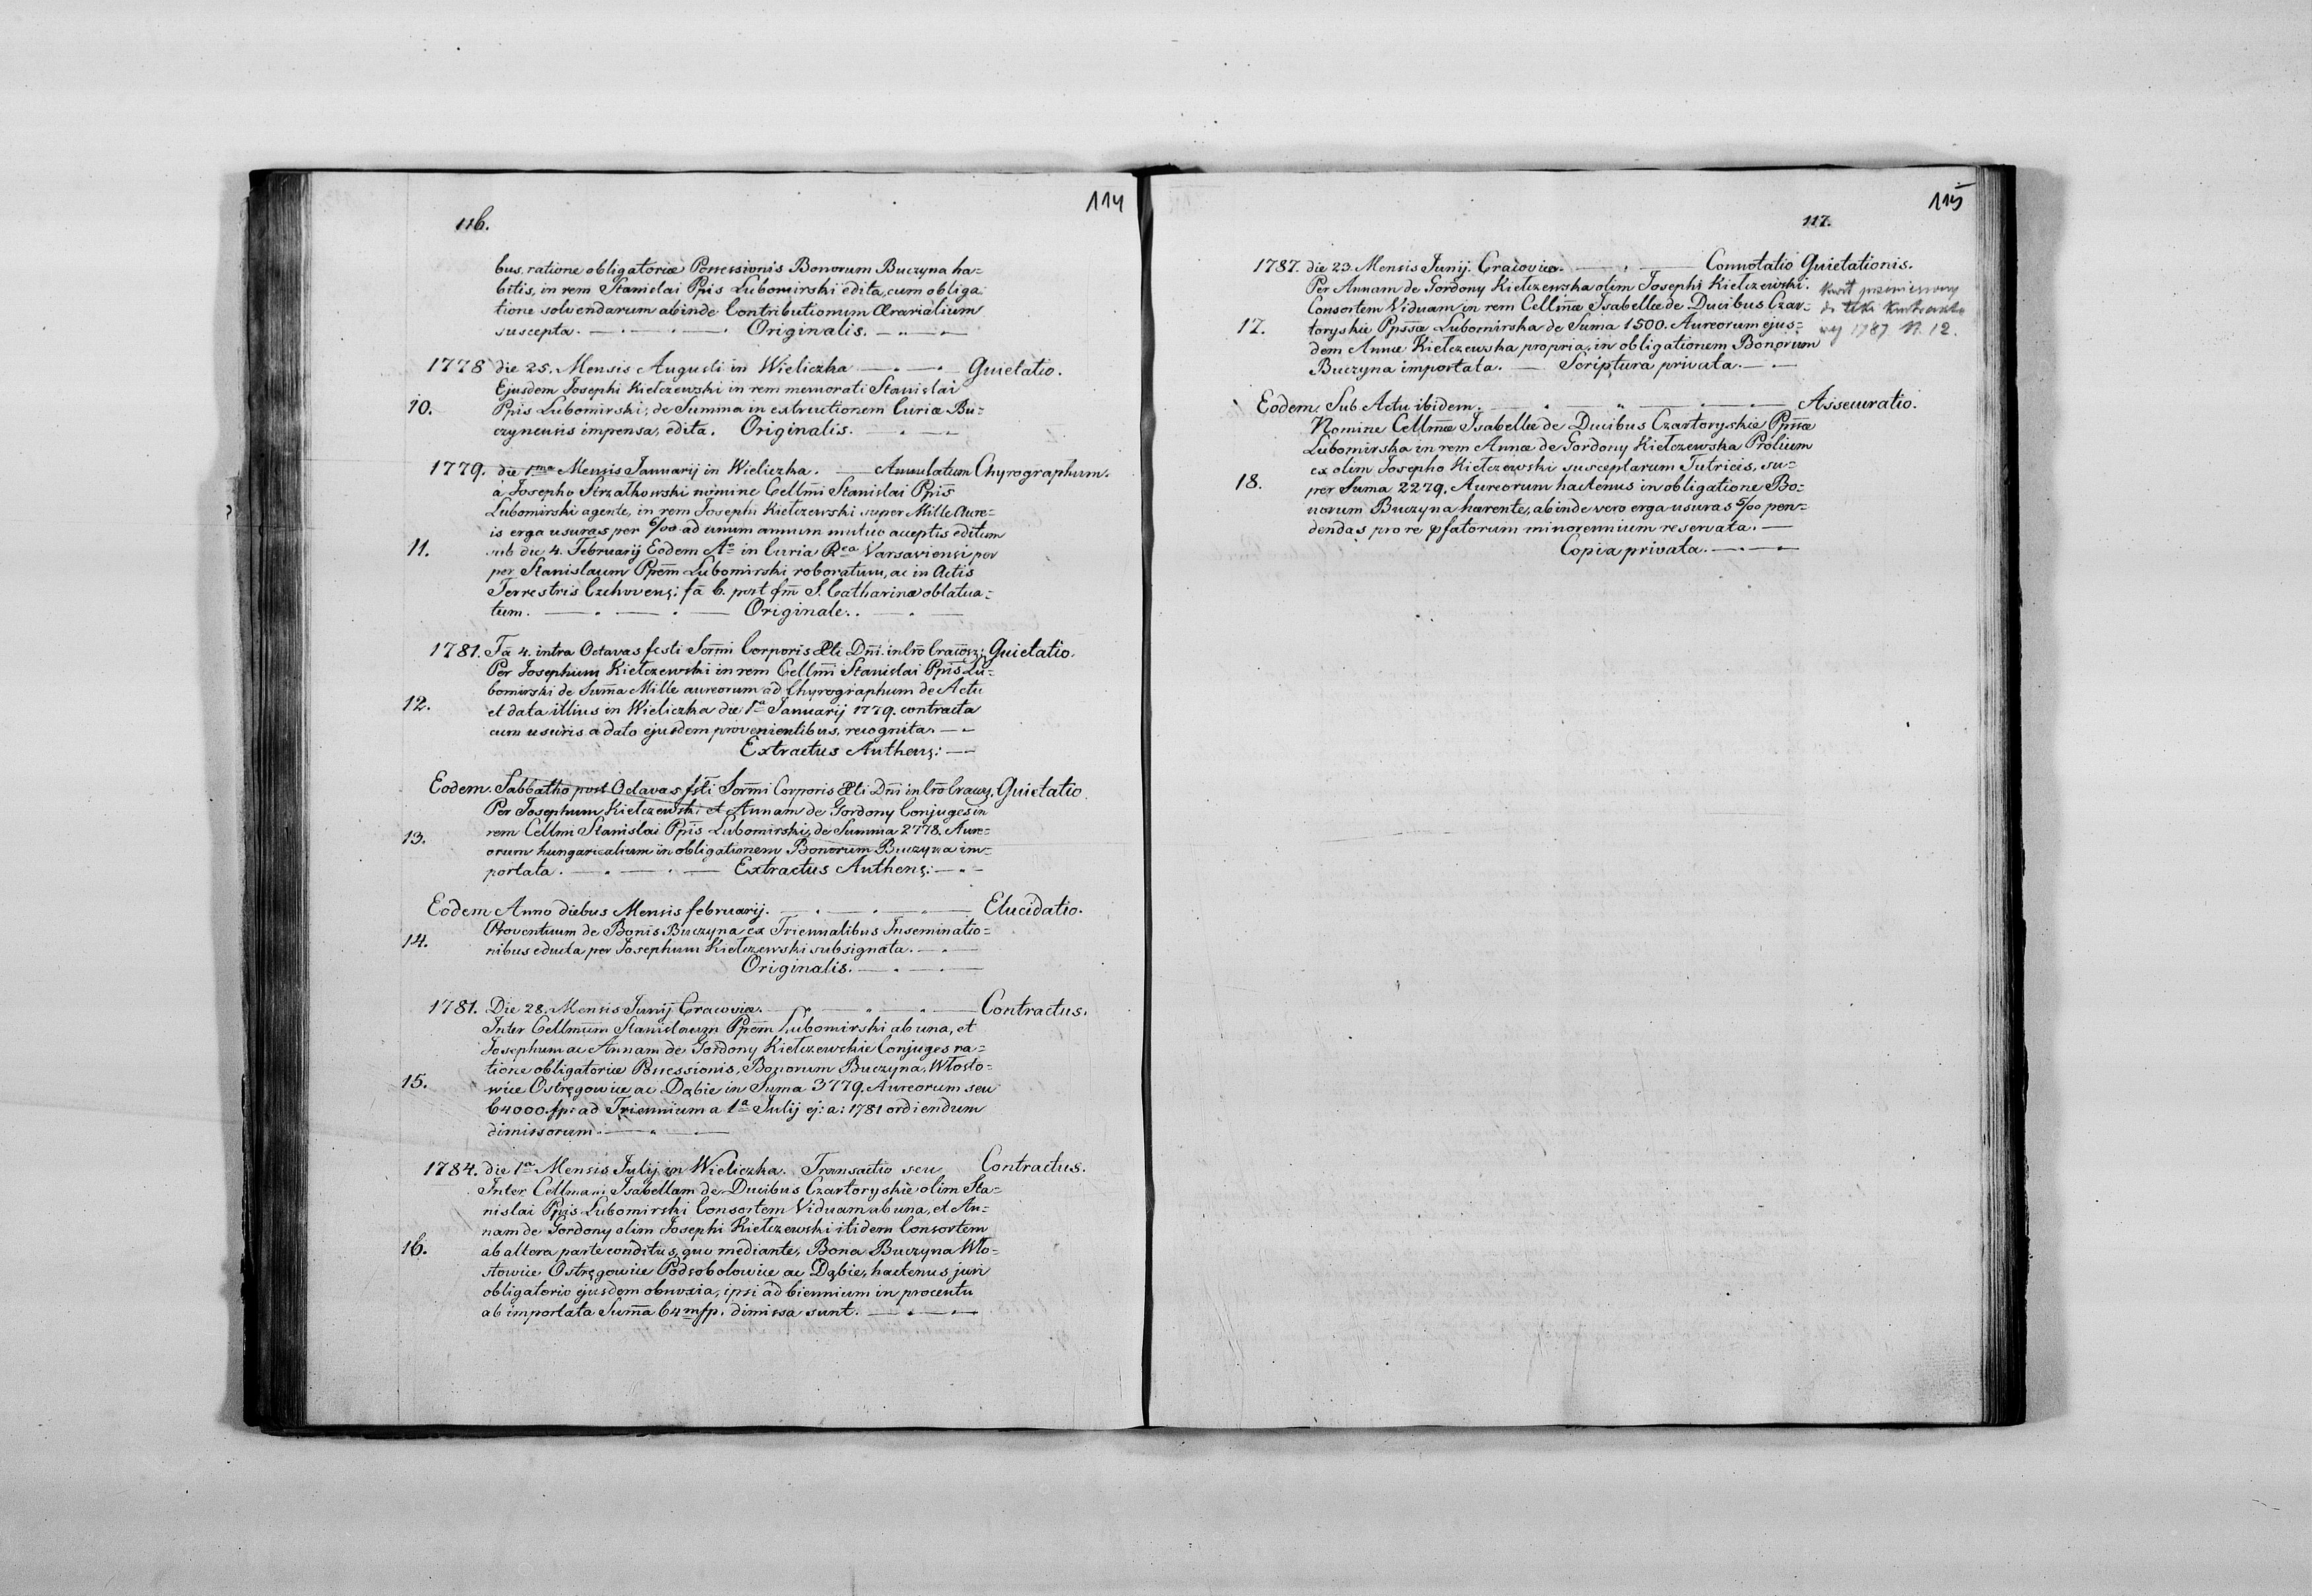 114
116.
bus, ratione obligatoriæ Possessionis Bonorum Buczyna ha=
bitis, in rem Stanislai Ppis Lubomirski edita, cum obliga
tione solvendarum abinde Contributionum Ærarialium
suscepta. Originalis.
1778 die 25. Mensis Augusti in Wieliczka Quietatio.
Ejusdem Josephi Kiełczewski in rem memorati Stanislai
10. Ppis Lubomirski, de Summa in extructionem Curiæ Bu=
czynensis impensa, edita. Originalis.
1779. die 1ma Mensis Januarij in Wieliczka. Annulatum Chyrographum.
à Josepho Strzałkowski nomine Cellmi Stanislai Ppis
Lubomirski agente, in rem Josephi Kiełczewski super Mille Aure=
is erga usuras per 6/00 ad unum annum mutuo acceptis editum
11. sub die 4. Februarij Eodem Ao in Curia Rea Varsaviensi per
per Stanislaum Ppem Lubomirski roboratum, ac in Actis
Terrestris Czchovens: fa 6. post fm S. Catharinæ oblatua=
tum. Originale.
1781. Fa 4. intra Octavas festi Ssmi Corporis Xti Dni. in Cro Cracovs: Quietatio.
Per Josephum Kiełczewski in rem Cellmi Stanislai Ppis Lu=
bomirski de Suma Mille aureorum ad Chyrographum de Actu
12. et data illius in Wieliczka die 1a Januarij 1779. contracta
cum usuris a dato ejusdem provenientibus, recognita.
Extractus Authens:
Eodem. Sabbatho post Octavas fsti Ssmi Corporis Xti Dni in Cro Cracvs. Quietatio.
Per Josephum Kiełczewski et Annam de Gordony Conjuges in
13. rem Cellmi Stanislai Ppis Lubomirski, de Summa 2778. Aure=
orum hungaricalium in obligationem Bonorum Buczyna im=
portata. Extractus Authens:
Eodem Anno diebus Mensis februarij. Elucidatio.
14. Proventuum de Bonis Buczyna ex Triennalibus Inseminatio=
nibus educta per Josephum Kiełczewski subsignata.
Originalis.
1781. Die 28. Mensis Junij Cracoviæ. Contractus.
Inter Cellmum Stanislaum Ppem Lubomirski ab una, et
Josephum ac Annam de Gordony Kiełczewskie Conjuges ra=
tione obligatoriæ Possessionis, Bonorum Buczyna, Włosto=
15. wice Ostręgowice ac Dąbie in Suma 3779. Aureorum seu
64000. fp: ad Triennium a 1a Julij ej: a: 1781 ordiendum
dimissorum.
1784. die 1a Mensis Julij in Wieliczka. Transactio seu Contractus.
Inter Cellmam Isabellam de Ducibus Czartoryskie olim Sta=
nislai Ppis Lubomirski Consortem Viduam ab una, et An=
nam de Gordony olim Josephi Kiełczewski itidem Consortem
16. ab altera parte conditus, quo mediante, Bona Buczyna Wło=
stowice Ostręgowice Podsobolowice ac Dąbie, hactenus juri
obligatorio ejusdem obnoxia, ipsi ad biennium in procentu
ab importata Suma 64m fp. dimissa sunt.
115
117.
1787. die 23. Mensis Junij. Cracoviæ. Connotatio Quietationis.
Per Annam de Gordony Kiełczewska olim Josephi Kiełczewski.
Consortem Viduam in rem Cellmæ Isabellæ de Ducibus Czar=
17. toryskie Ppssæ Lubomirska de Suma 1500. Aureorum ejus=
dem Annæ Kiełczewska propria, in obligationem Bonorum
Buczyna importata. Scriptura privata.
Kwit przeniesiony
do teki
1787. N. 12.
Eodem. Sub Actu ibidem. Assecuratio.
Nomine Cellmæ Isabellæ de Ducibus Czartoryskie Ppssæ
Lubomirska in rem Annæ de Gordony Kiełczewska Prolium
ex olim Josepho Kiełczewski susceptarum Tutricis, su=
18. per Suma 2279. Aureorum hactenus in obligatione Bo=
norum Buczyna hærente, abinde vero erga usuras 5/00 pen=
dendas pro re pfatorum minorennium reservata.
Copia privata.